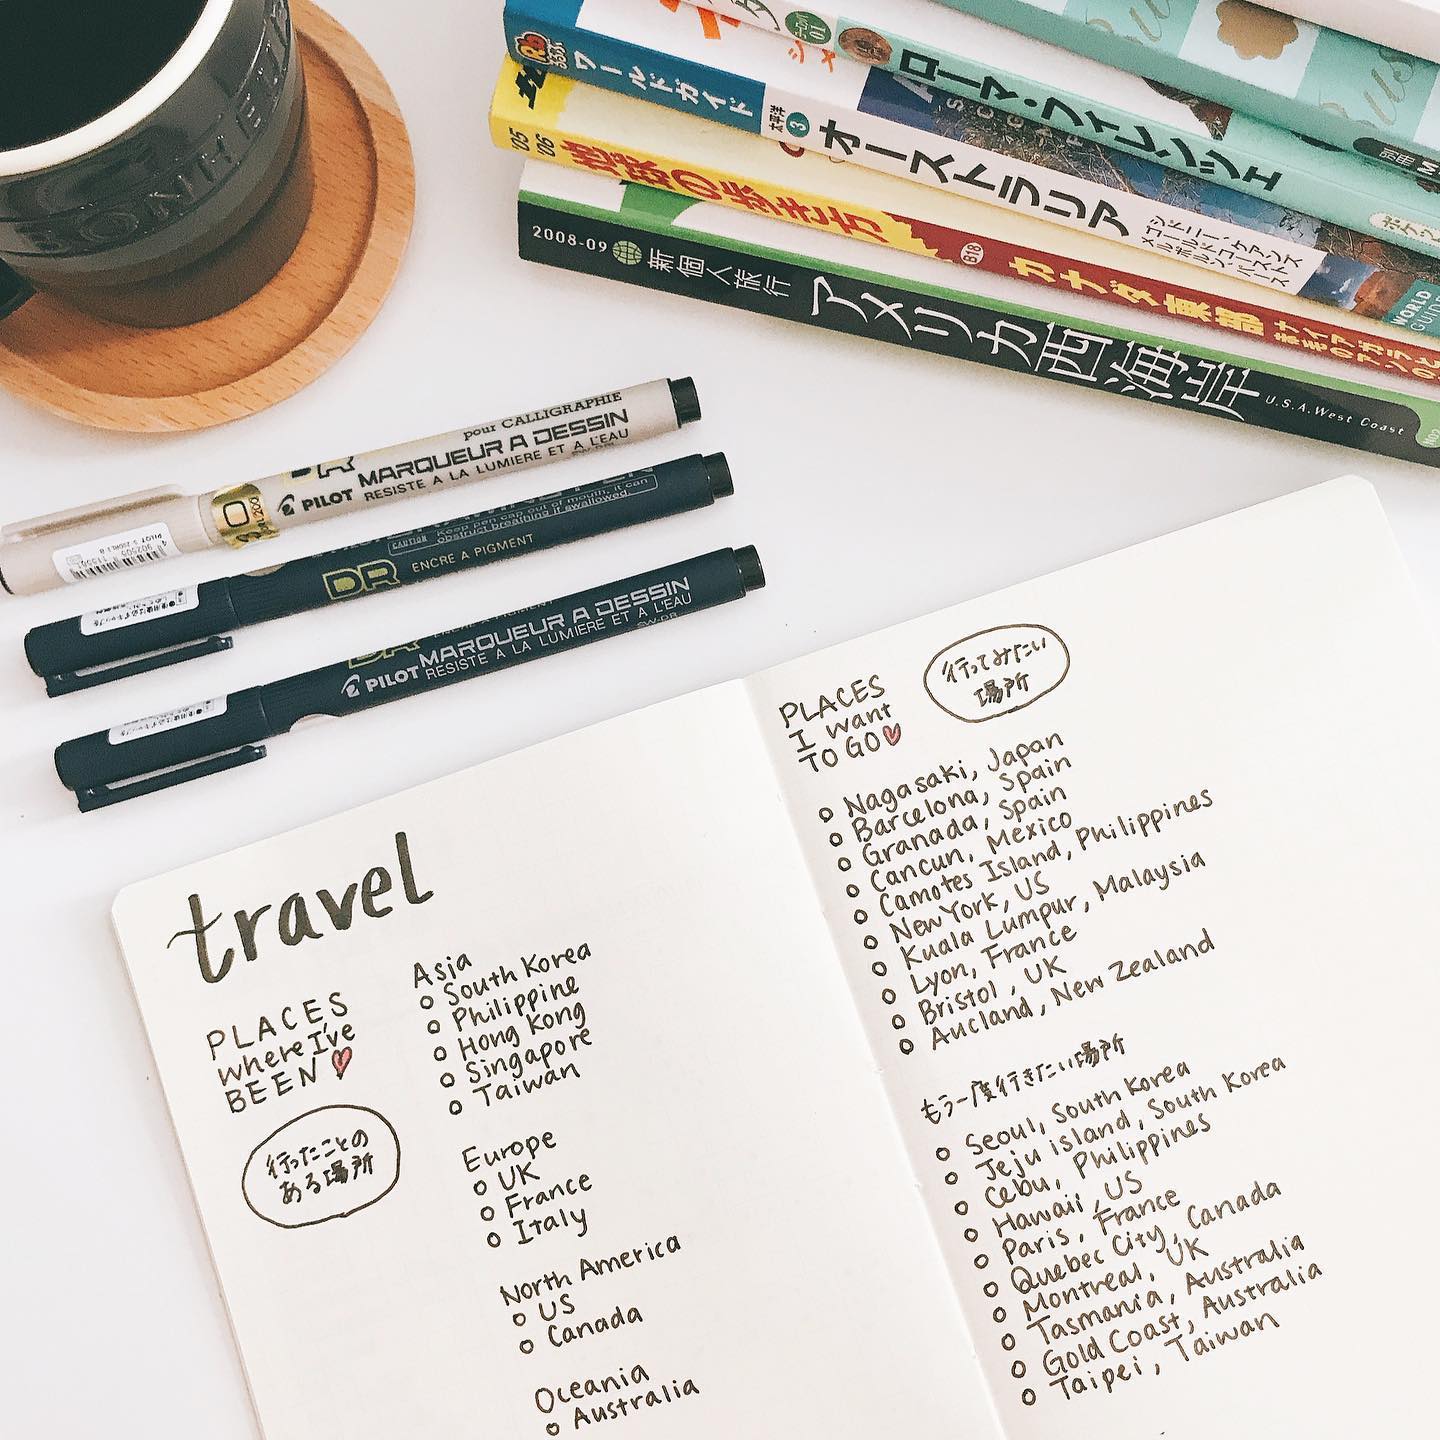 BON THE
ワールドガイド
太平洋 3
オーストラリア
シドニー・ケアンズ
ゴールドコースト
メルボルン・パース
WORLD
GUIDE
ローマ・フィレンツェ
別冊 M
'05
'06
地球の歩き方
B18
カナダ東部
ナイアガラと
赤毛のアンの
2008-09
新個人旅行
アメリカ西海岸
U.S.A.West Coast
pour CALLIGRAPHIE
DR MARQUEUR A DESSIN
PILOT RESISTE A LA LUMIERE ET A L'EAU
CAUTION Keep pen cap out of mouth, it can
obstruct breathing if swallowed.
DR ENCRE A PIGMENT
DR MARQUEUR A DESSIN
PILOT RESISTE A LA LUMIERE ET A L'EAU
SW-DR
travel
PLACES
where I've
BEEN
行ったことの
ある場所
Asia
South Korea
Philippine
Hong Kong
Singapore
Taiwan
Europe
UK
France
Italy
North America
US
Canada
Oceania
Australia
PLACES
I want
TO GO
行ってみたい
場所
Nagasaki, Japan
Barcelona, Spain
Granada, Spain
Cancun, Mexico
Camotes Island, Philippines
New York, US
Kuala Lumpur, Malaysia
Lyon, France
Bristol, UK
Aucland, New Zealand
もう一度行きたい場所
Seoul, South Korea
Jeju island, South Korea
Cebu, Philippines
Hawaii, US
Paris, France
Quebec City, Canada
Montreal, UK
Tasmania, Australia
Gold Coast, Australia
Taipei, Taiwan